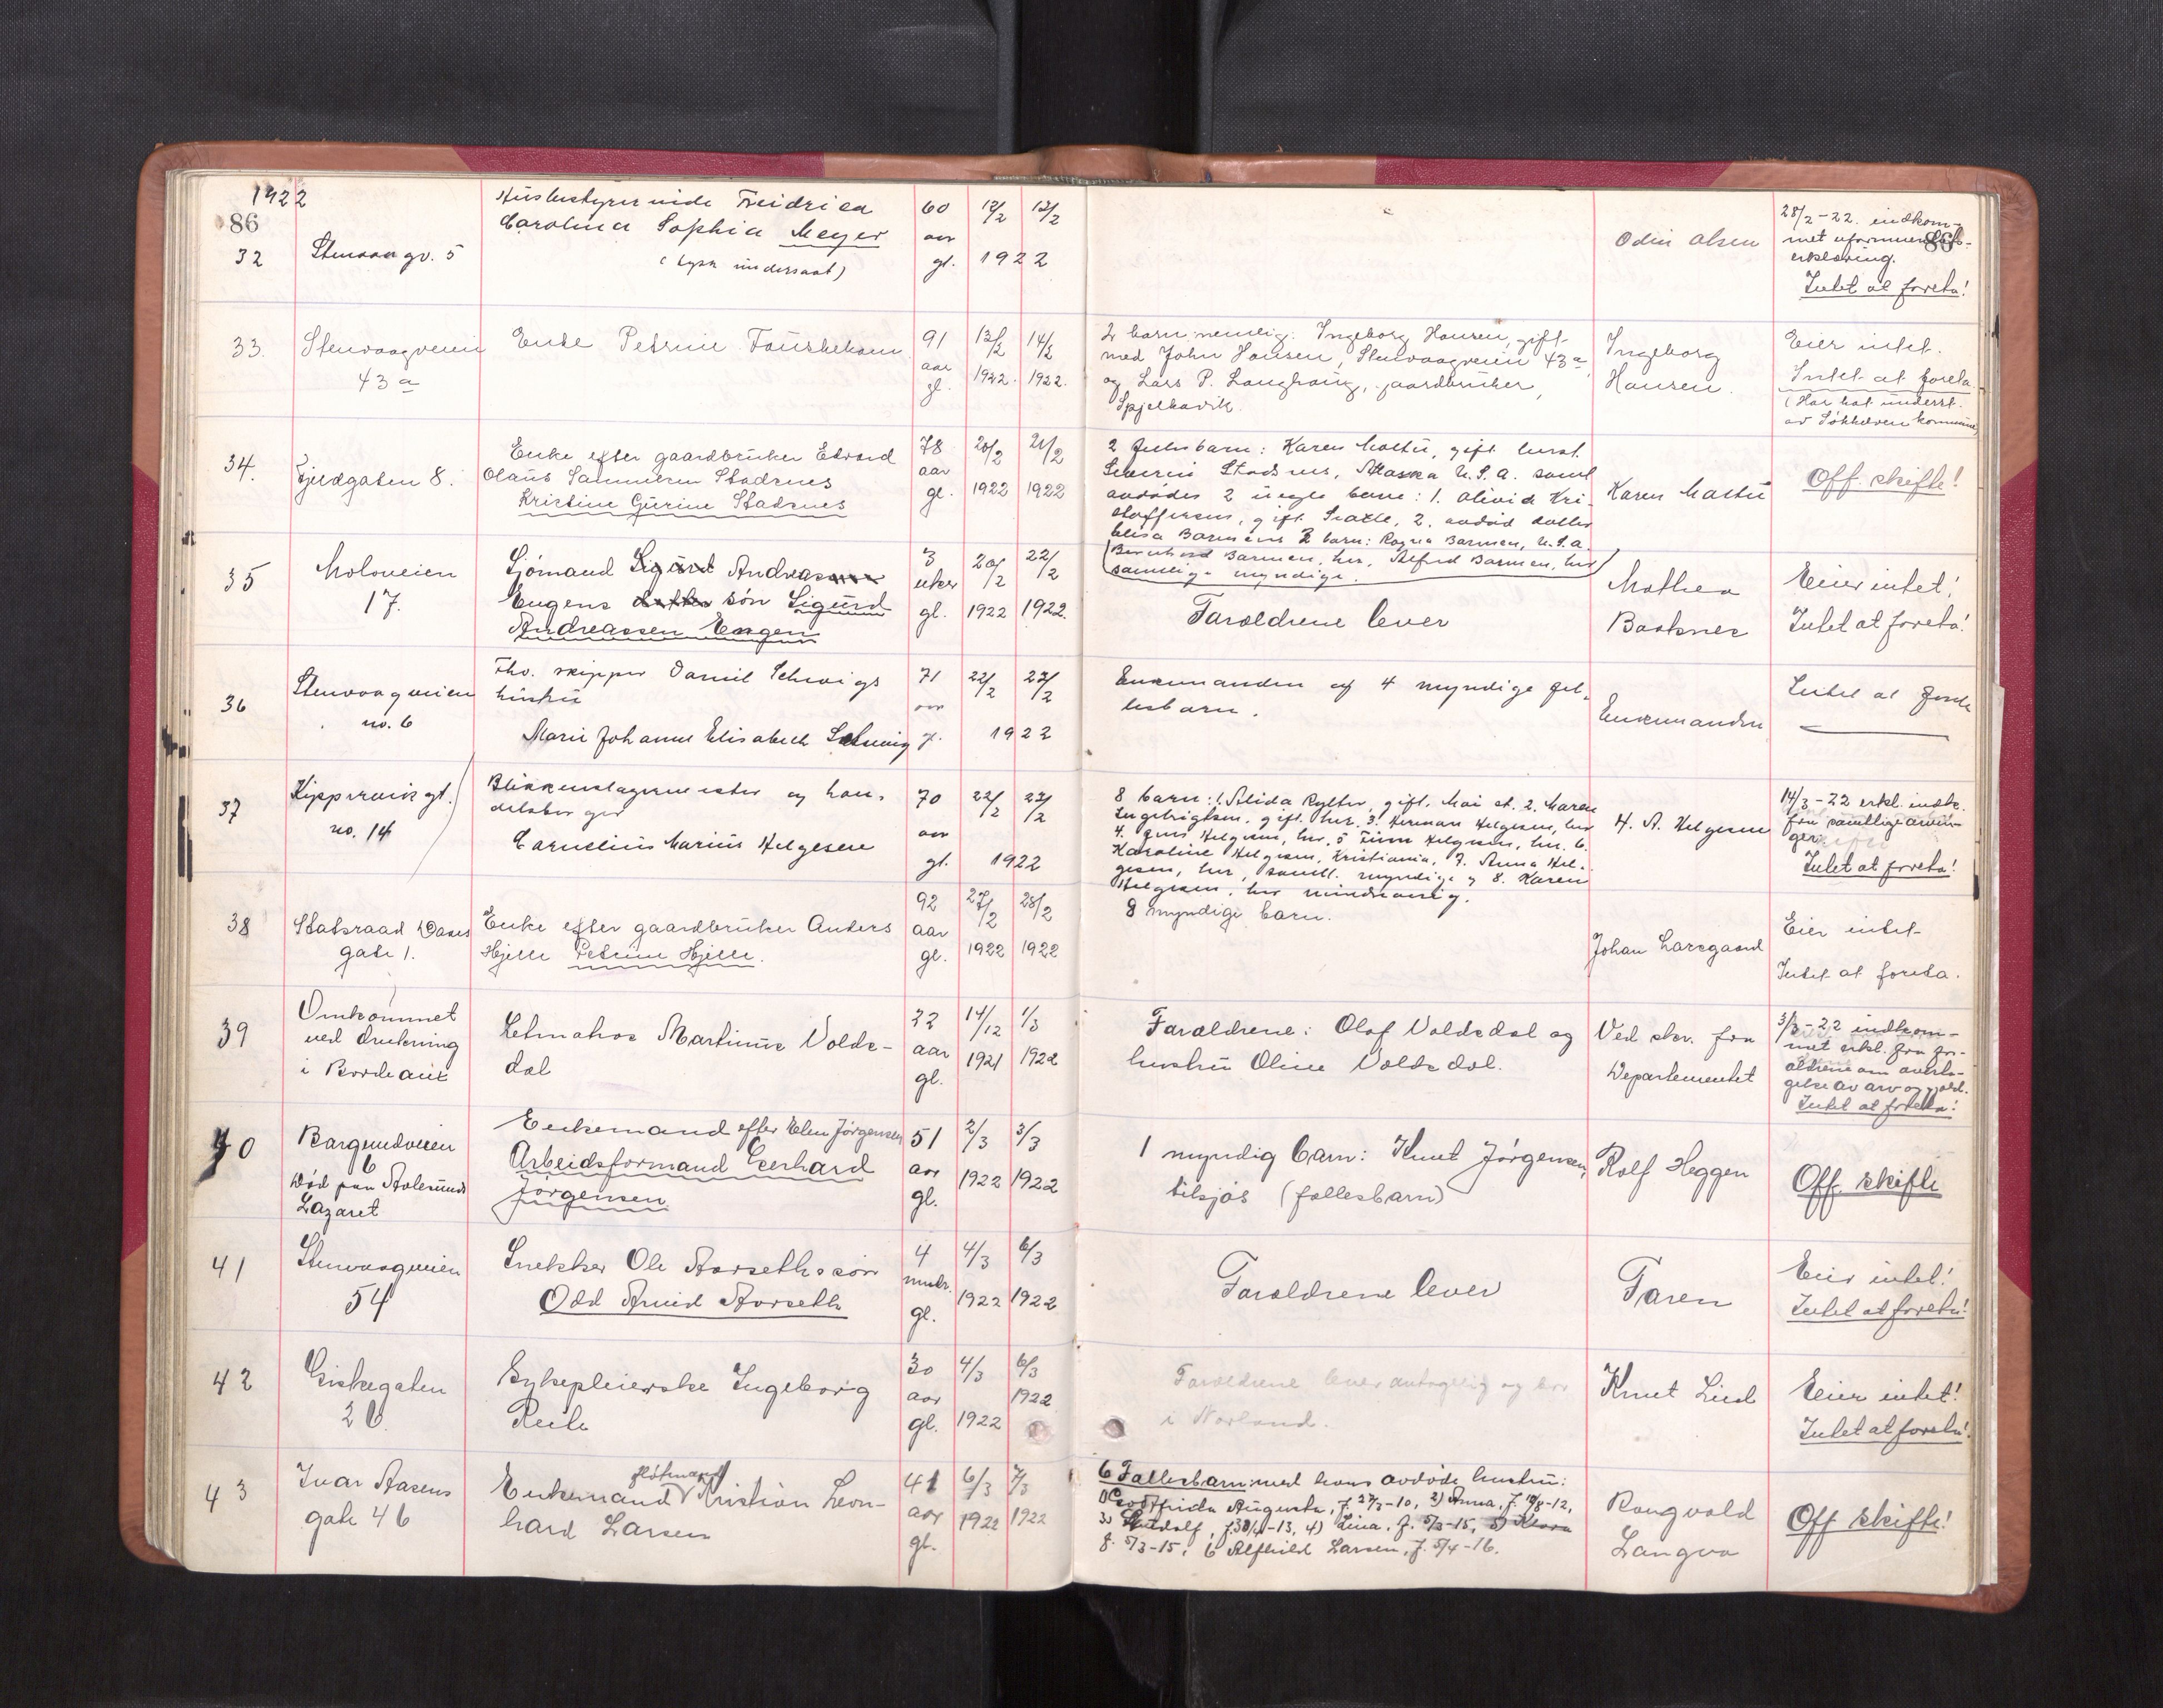 1922
86
86
32
Stenvaagv. 5
Husbestyrerinde Freidrica
Carolina Sophia Meyer
(tysk undersaat)
60
aar
gl.
12/2
13/2
1922
Odin Olsen
28/2-22. indkom-
met uformuenhets-
erklæring.
Intet at foreta!
33.
Stenvaagveien
43 a
Enke Petrine
91
aar
gl.
13/2
1922.
14/2
1922.
2 barn nemlig: Ingeborg Hansen, gift
med John Hansen, Stenvaagveien 43 a,
og Lars P. Langhaug, gaardbruker,
Spjelkavik.
Ingeborg
Hansen.
Eier intet.
Intet at foreta.
(Har hat underst.
av kommune)
34.
Fjeldgaten 8.
Enke efter gaardbruker Edvard
Olaus Stadsnes
Kristine Gurine Stadsnes
78
aar
gl.
20/2
1922
21/2
1922
2 barn: Karen Moltu, gift herst.
Severin Stadsnes, Alaska U.S.A. samt
avdødes 2 uegte barn: 1. Olivid Kri-
stoffersen, gift Seatle, 2. avdød datter
Elisa Barmens 3 barn: Ragna Barmen, U.S.A.
Bernhard Barmen, her, Alfred Barmen, her
samtlige myndige.
Karen Moltu
Off. skifte!
35
Moloveien
17.
Sjømand Sigurd Andreassen
Eugens datter søn Sigurd
Andreassen Eugen
3
uker
gl.
20/2
1922
22/2
1922.
Faroeldrene lever
Mathea
Eier intet!
Intet at foreta!
36
Stenvaagveien
no. 6
Fhv. skipper Daniel Schwigs
hustru
Marie Johanne Elisabeth Schwig
71
aar
gl.
22/2
23/2
1922
Enkemanden og 4 myndige fel-
lesbarn.
Enkemanden
Intet at foreta
37
Kippervikgt.
no. 14
Blikkenslagermester og han-
delsborger
Cornelius Marius Helgesen
70
aar
gl.
22/2
23/2
1922
8 barn: 1. Alida Rytter, gift, Moi st. 2. Maren
Ingebrigtsen, gift her, 3. Herman Helgesen, her
4. Jens Helgesen, her, 5 Finn Helgesen, her. 6.
Karoline Helgesen, Kristiania, 7. Anna Hel-
gesen, her, samtl. myndige og 8. Karen
Helgesen, her mindreaarig.
H. A. Helgesen
14/3-22 erkl. indk.
fra samtlige arvin-
ger.
Intet at foreta!
38
Statsraad Daaes
gate 1.
Enke efter gaardbruker Anders
Hjelle Petrine Hjelle.
92
aar
gl.
27/2
1922
28/2
1922
8 myndige barn.
Johan Larsgaard
Eier intet
Intet at foreta.
39
Omkommet
ved drukning
i Bordeaux
Letmatros Martinus Volds-
dal
22
aar
gl.
14/12
1921
1/3
1922
Faroeldrene: Olaf Voldsdal og
hustru Oline Voldsdal.
Ved skr. fra
Departementet
3/3-22 indkom-
met erkl. fra for-
ældrene om overta-
gelse av arv og gjeld.
Intet at foreta!
40
Borgundveien
6
Død paa Aalesunds
Lazaret
Enkemand efter Elen Jørgensen
Arbeidsformand Gerhard
Jørgensen
51
aar
gl.
2/3
1922
3/3
1922
1 myndig barn: Knut Jørgensen,
tilsjøs (fællesbarn)
Rolf Heggen
Off. skifte
41
Stenvaagveien
54
Snekker Ole Aarseths søn
Odd Arvid Aarseth
4
mndr.
gl.
4/3
1922
6/3
1922
Faroeldrene lever
Faren
Eier intet!
Intet at foreta!
42
Giskegaten
26
Sykepleierske Ingeborg
30
aar
gl.
4/3
1922
6/3
1922
Faroeldrene lever antagelig og bor
i Norland.
Knut Lied
Eier intet!
Intet at foreta!
43
Ivar Aasens
gate 46
Enkemand fløtmand Kristian Leon-
hard Larsen
41
aar
gl.
6/3
1922
7/3
1922
6 Fellesbarn med hans avdøde hustru:
1) Augusta, f. 27/3-10, 2) Anna, f. 10/8-12,
3) Rudolf, f. 30/11-13, 4) Lina, f. 5/3-15, 5) Klara
f. 5/3-15, 6 Alfhild Larsen, f. 5/4-16.
Rangvald
Langva
Off skifte!